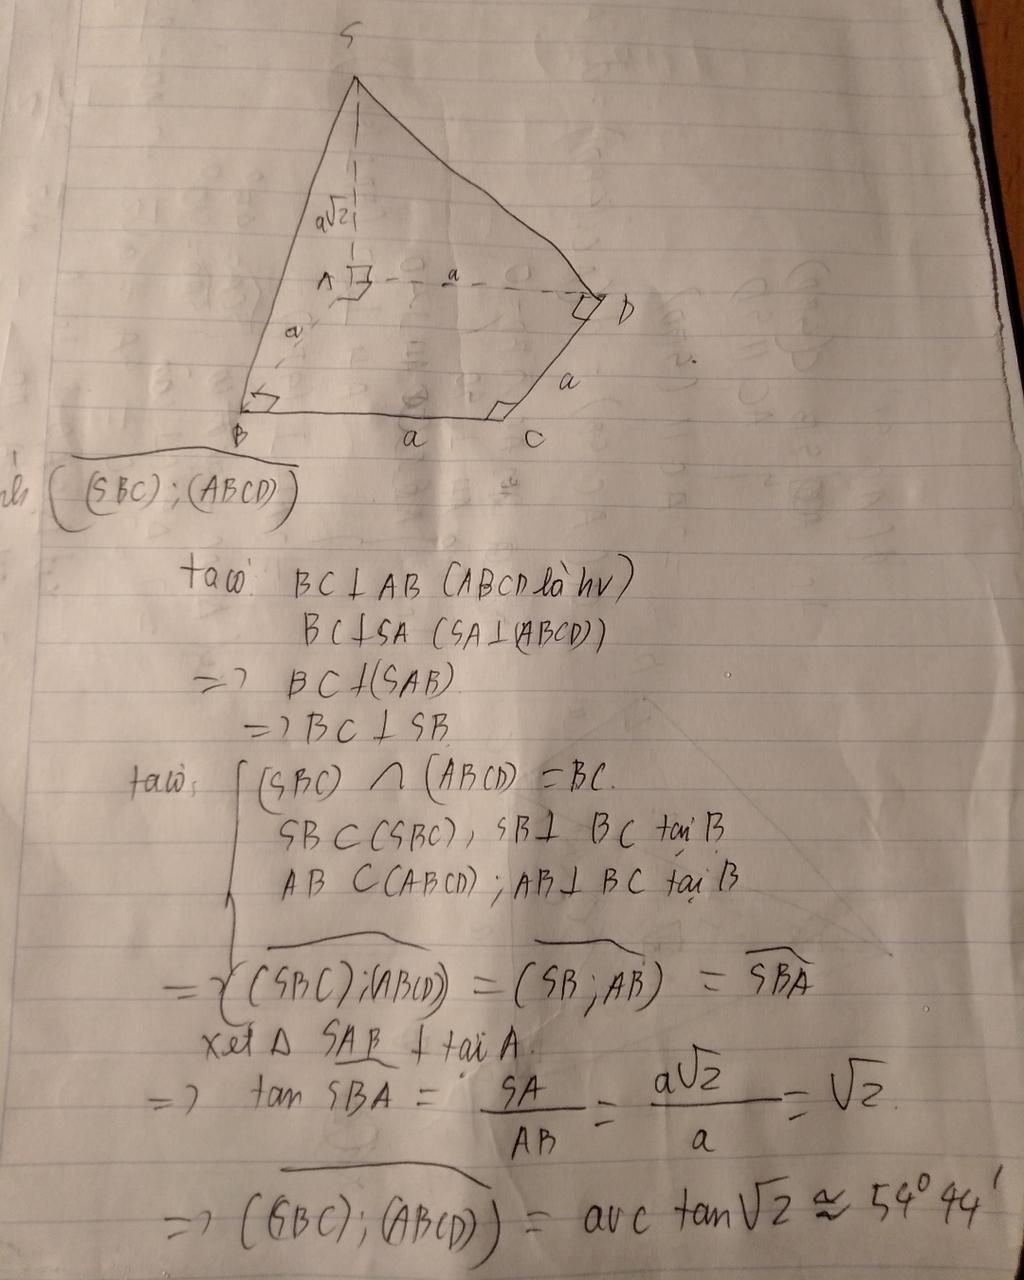 S
a√2
A
a
D
a
a
B
a
C
((SBC);(ABCD))
ta có: BC ⊥ AB (ABCD là hv)
BC ⊥ SA (SA ⊥ (ABCD))
=> BC ⊥ (SAB)
=> BC ⊥ SB
ta có: { (SBC) ∩ (ABCD) = BC.
SB ⊂ (SBC), SB ⊥ BC tại B
AB ⊂ (ABCD); AB ⊥ BC tại B
=> ((SBC);(ABCD)) = (SB;AB) = SBA
xét Δ SAB ⊥ tại A.
=> tan SBA = SA/AB = a√2/a = √2.
=> ((SBC);(ABCD)) = arc tan √2 ≈ 54°44'